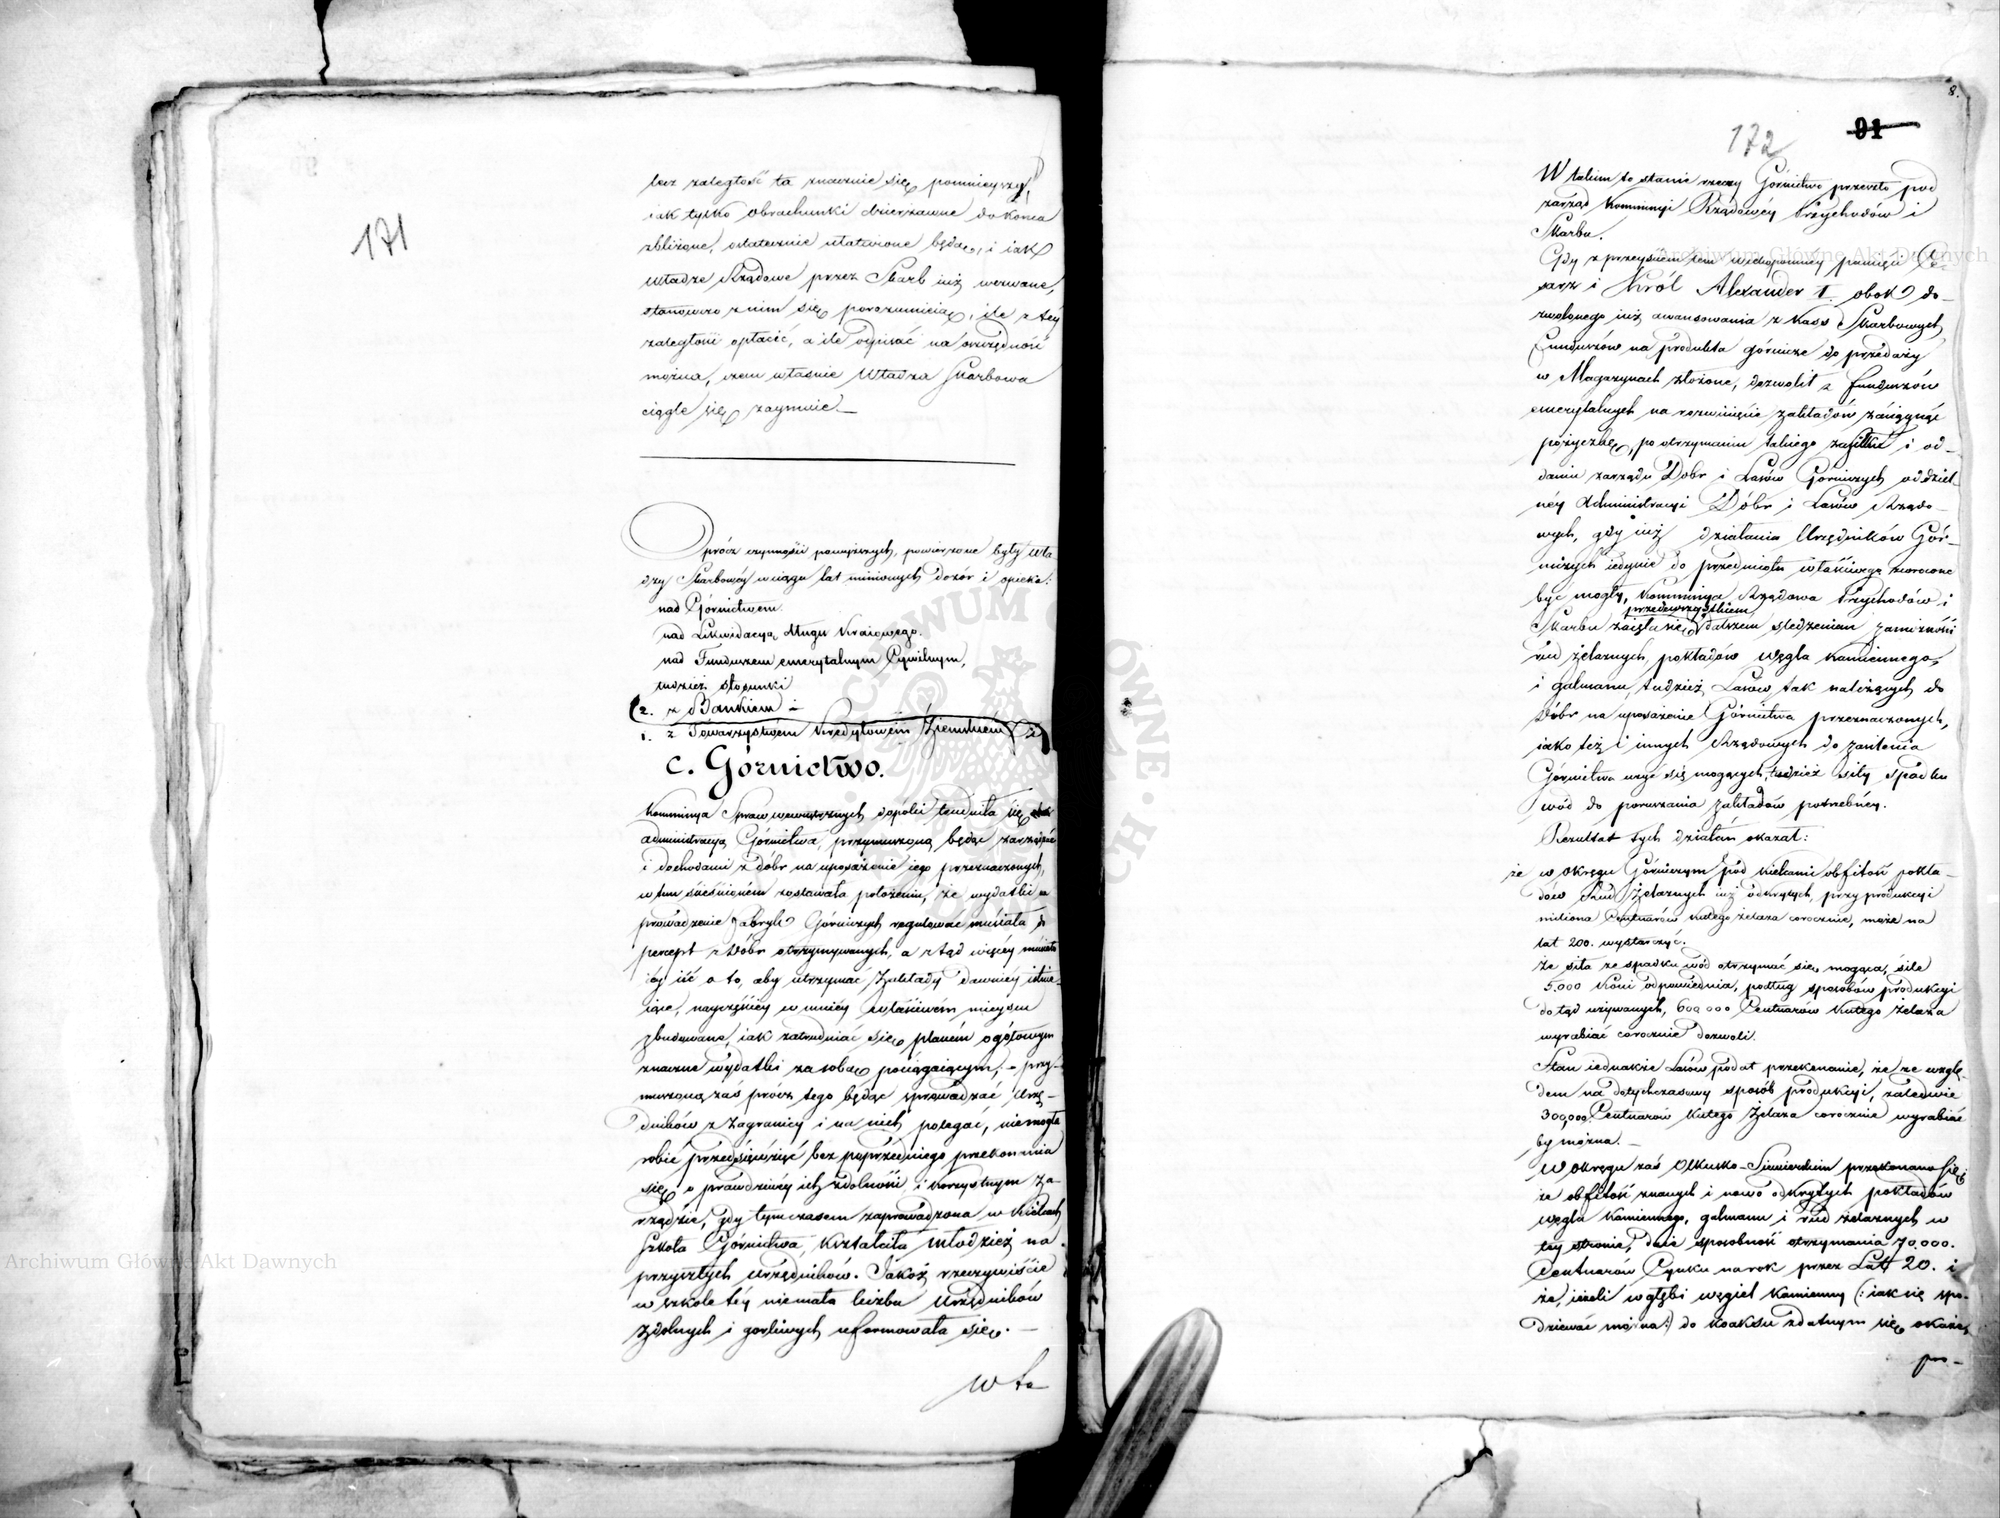 171
lecz zaległość ta znacznie się pomnieyszy,
iak tylko obrachunki dzierżawne do końca
zbliżone, ostatecznie ułatwione będą, i iak
Władze Rządowe przez Skarb iuż wezwane,
stanowczo z nim się porozumieią, ile z tey
zaległości opłacić, a ile odpisać na oszczędność
można, czem właśnie Władza Skarbowa
ciągle się zaymuie.—
Oprócz czynności powyższych, powierzone były Wła
dzy Skarbowéy w ciągu lat minionych dozór i opieka:
nad Górnictwem.
nad Likwidacyą długu Kraiowego.
nad Funduszem emerytalnym Cywilnym,
tudzież stosunki
2. z Bankiem i
1. z Towarzystwem Kredytowem Ziemskiem
C. Górnictwo.
Kommissya Spraw wewnętrznych dopóki trudniła się
administracyą Górnictwa, przymuszoną będąc zarządzać
i dochodami z dóbr na uposażenie iego przeznaczonych,
w tem ścieśnionem zostawała położeniu, że wydatki na
prowadzenie Fabryk Górniczych regulować musiała do
percept z Dóbr otrzymywanych, a ztąd więcéy musiało
iéy iść o to, aby utrzymać Zakłady dawniéy istnie-
iące, nayczęściey w mniéy właściwem mieyscu
zbudowane, iak zatrudniać się planem ogółowym
znaczne wydatki za sobą pociągaiącym; — przy-
muszoną zaś prócz tego będąc sprowadzać Urzę-
dników z Zagranicy i na nich polegać, niemogła
robić przedsięwzięć bez poprzedniego przekonania
się o prawdziwéy ich zdolności i korzystnym Za-
rządzie, gdy tymczasem zaprowadzona w Kielcach
Szkoła Górnictwa, kształciła młodzież na
przyszłych urzędników. Jakoż rzeczywiście
w szkole téy niemała liczba Urzędników
Zdolnych i gorliwych uformowała się. —
W ta
8.
172 91
W takim to stanie rzeczy Górnictwo przeszło pod
zarząd Kommissyi Rządowéy Przychodów i
Skarbu.
Gdy z przeyściem tem wiekopomney pamięci Ce-
sarz i Król Alexander I. obok do-
zwolonego iuż awansowania z Kass Skarbowych
Funduszów na produkta górnicze do przedaży
w Magazynach złożone, dozwolił z funduszów
emerytalnych na rozwinięcie zakładów zaciągnąć
pożyczkę, po otrzymaniu takiego zasiłku i od-
daniu zarządu Dóbr i Lasów Górniczych oddziel-
néy Administracyi Dóbr i Lasów Rządo-
wych, gdy iuż działania Urzędników Gór-
niczych iedynie do przedmiotu właściwego zwrócone
być mogły, Kommissya Rządowa Przychodów i
przedewszystkiem
Skarbu zaięła się dalszem śledzeniem zamożności
rud żelaznych, pokładów węgla kamiennego,
i galmanu, tudzież Lasów tak należących do
Dóbr na uposażenie Górnictwa przeznaczonych,
iako też i innych Rządowych do zasilenia
Górnictwa użyć się mogących, tudzież siły spadku
wód do poruszania zakładów potrzebnéy.
Rezultat tych działań okazał:
że w okręgu Górniczym pod Kielcami obfitość pokła-
dów Rud Żelaznych iuż odkrytych, przy produkcyi
miliona Centnarów kutego żelaza corocznie, może na
lat 200. wystarczyć.
Że siła ze spadku wód otrzymać się mogąca, sile
5.000 Koni odpowiednia, podług sposobów produkcyi
dotąd używanych, 600,000 Centnarów kutego żelaza
wyrabiać corocznie dozwoli.
Stan iednakże Lasów podał przekonanie, że ze wzglę-
dem na dotychczasowy sposób produkcyi, zaledwie
300,000 Centnarów kutego Żelaza corocznie wyrabiać
by można. —
W okręgu zaś Olkusko-Siewierskim przekonano się,
że obfitość znanych i nowo odkrytych pokładów
węgla kamiennego, galmanu i rud żelaznych w
téy stronie, daie sposobność otrzymania 70.000.
Centnarów Cynku na rok przez Lat 20. i
że, ieżeli w głębi węgiel kamienny (: iak się spo-
dziewać można:) do koaksu zdatnym się okaże,
pro-
Archiwum Główne Akt Dawnych
Archiwum Główne Akt Dawnych